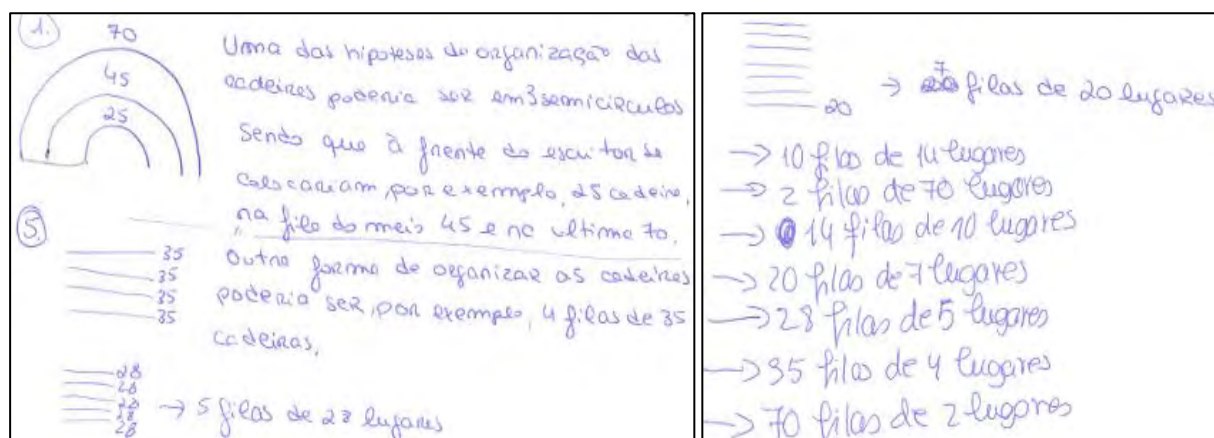 1.
70
45
25
Uma das hipoteses de organização das
cadeiras poderia ser em 3 semicirculos
Sendo que à frente do escritor se
colocariam, por exemplo, 25 cadeiras,
na fila do meio 45 e na ultima 70.
5.
35
35
35
35
Outra forma de organizar as cadeiras
poderia ser, por exemplo, 4 filas de 35
cadeiras,
28
28
28
28
28
→ 5 filas de 28 lugares
20
→ 7 filas de 20 lugares
→ 10 filas de 14 lugares
→ 2 filas de 70 lugares
→ 14 filas de 10 lugares
→ 20 filas de 7 lugares
→ 28 filas de 5 lugares
→ 35 filas de 4 lugares
→ 70 filas de 2 lugares